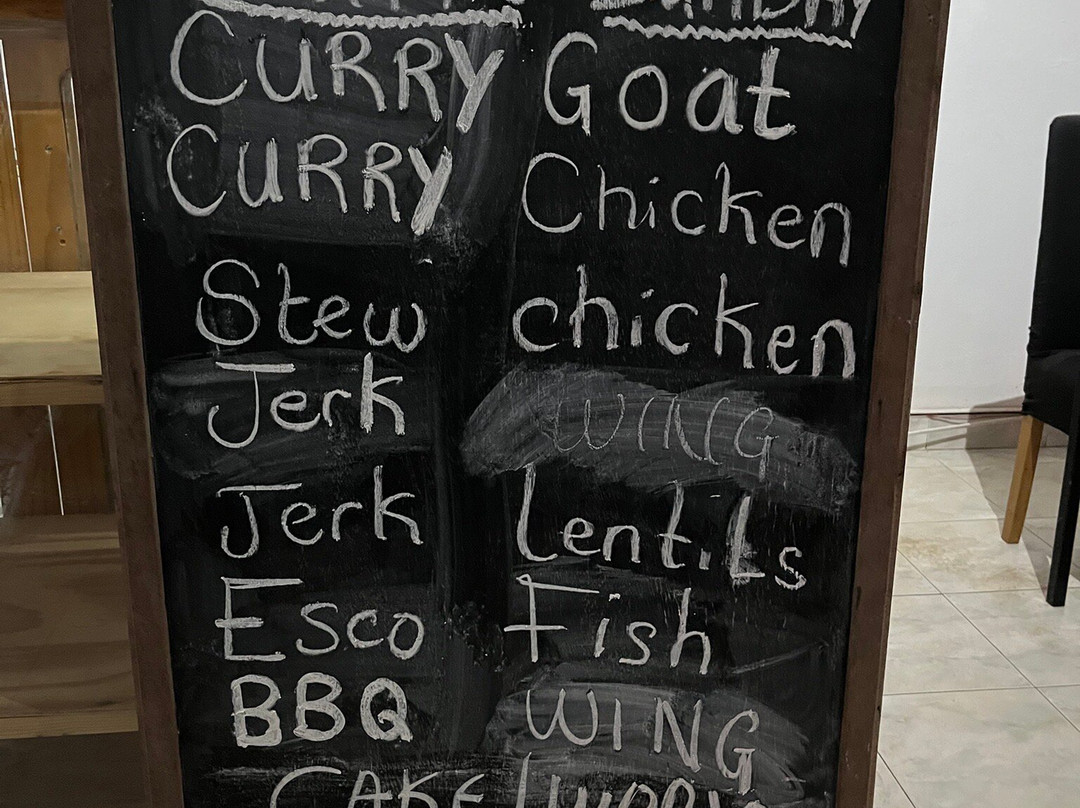 CURRY Goat
CURRY Chicken
Stew chicken
Jerk WING
Jerk Lentils
Esco Fish
BBQ WING
CAKE